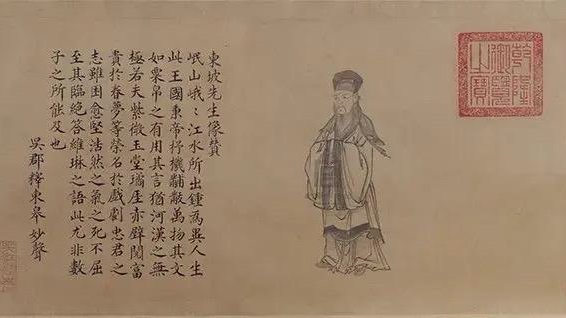 乾隆
御覽
之寶
東坡先生像贊
岷山峨〻江水所出鍾為異人生
此王國秉帝杼機黼黻萬物其文
如粟帛之有用其言猶河漢之無
極若夫紫微玉堂瓊崖赤壁閱富
貴於春夢等榮名於戲劇忠君之
志雖困愈堅浩然之氣之死不屈
至其臨絕答維琳之語此尤非數
子之所能及也
吳郡釋東皋妙聲